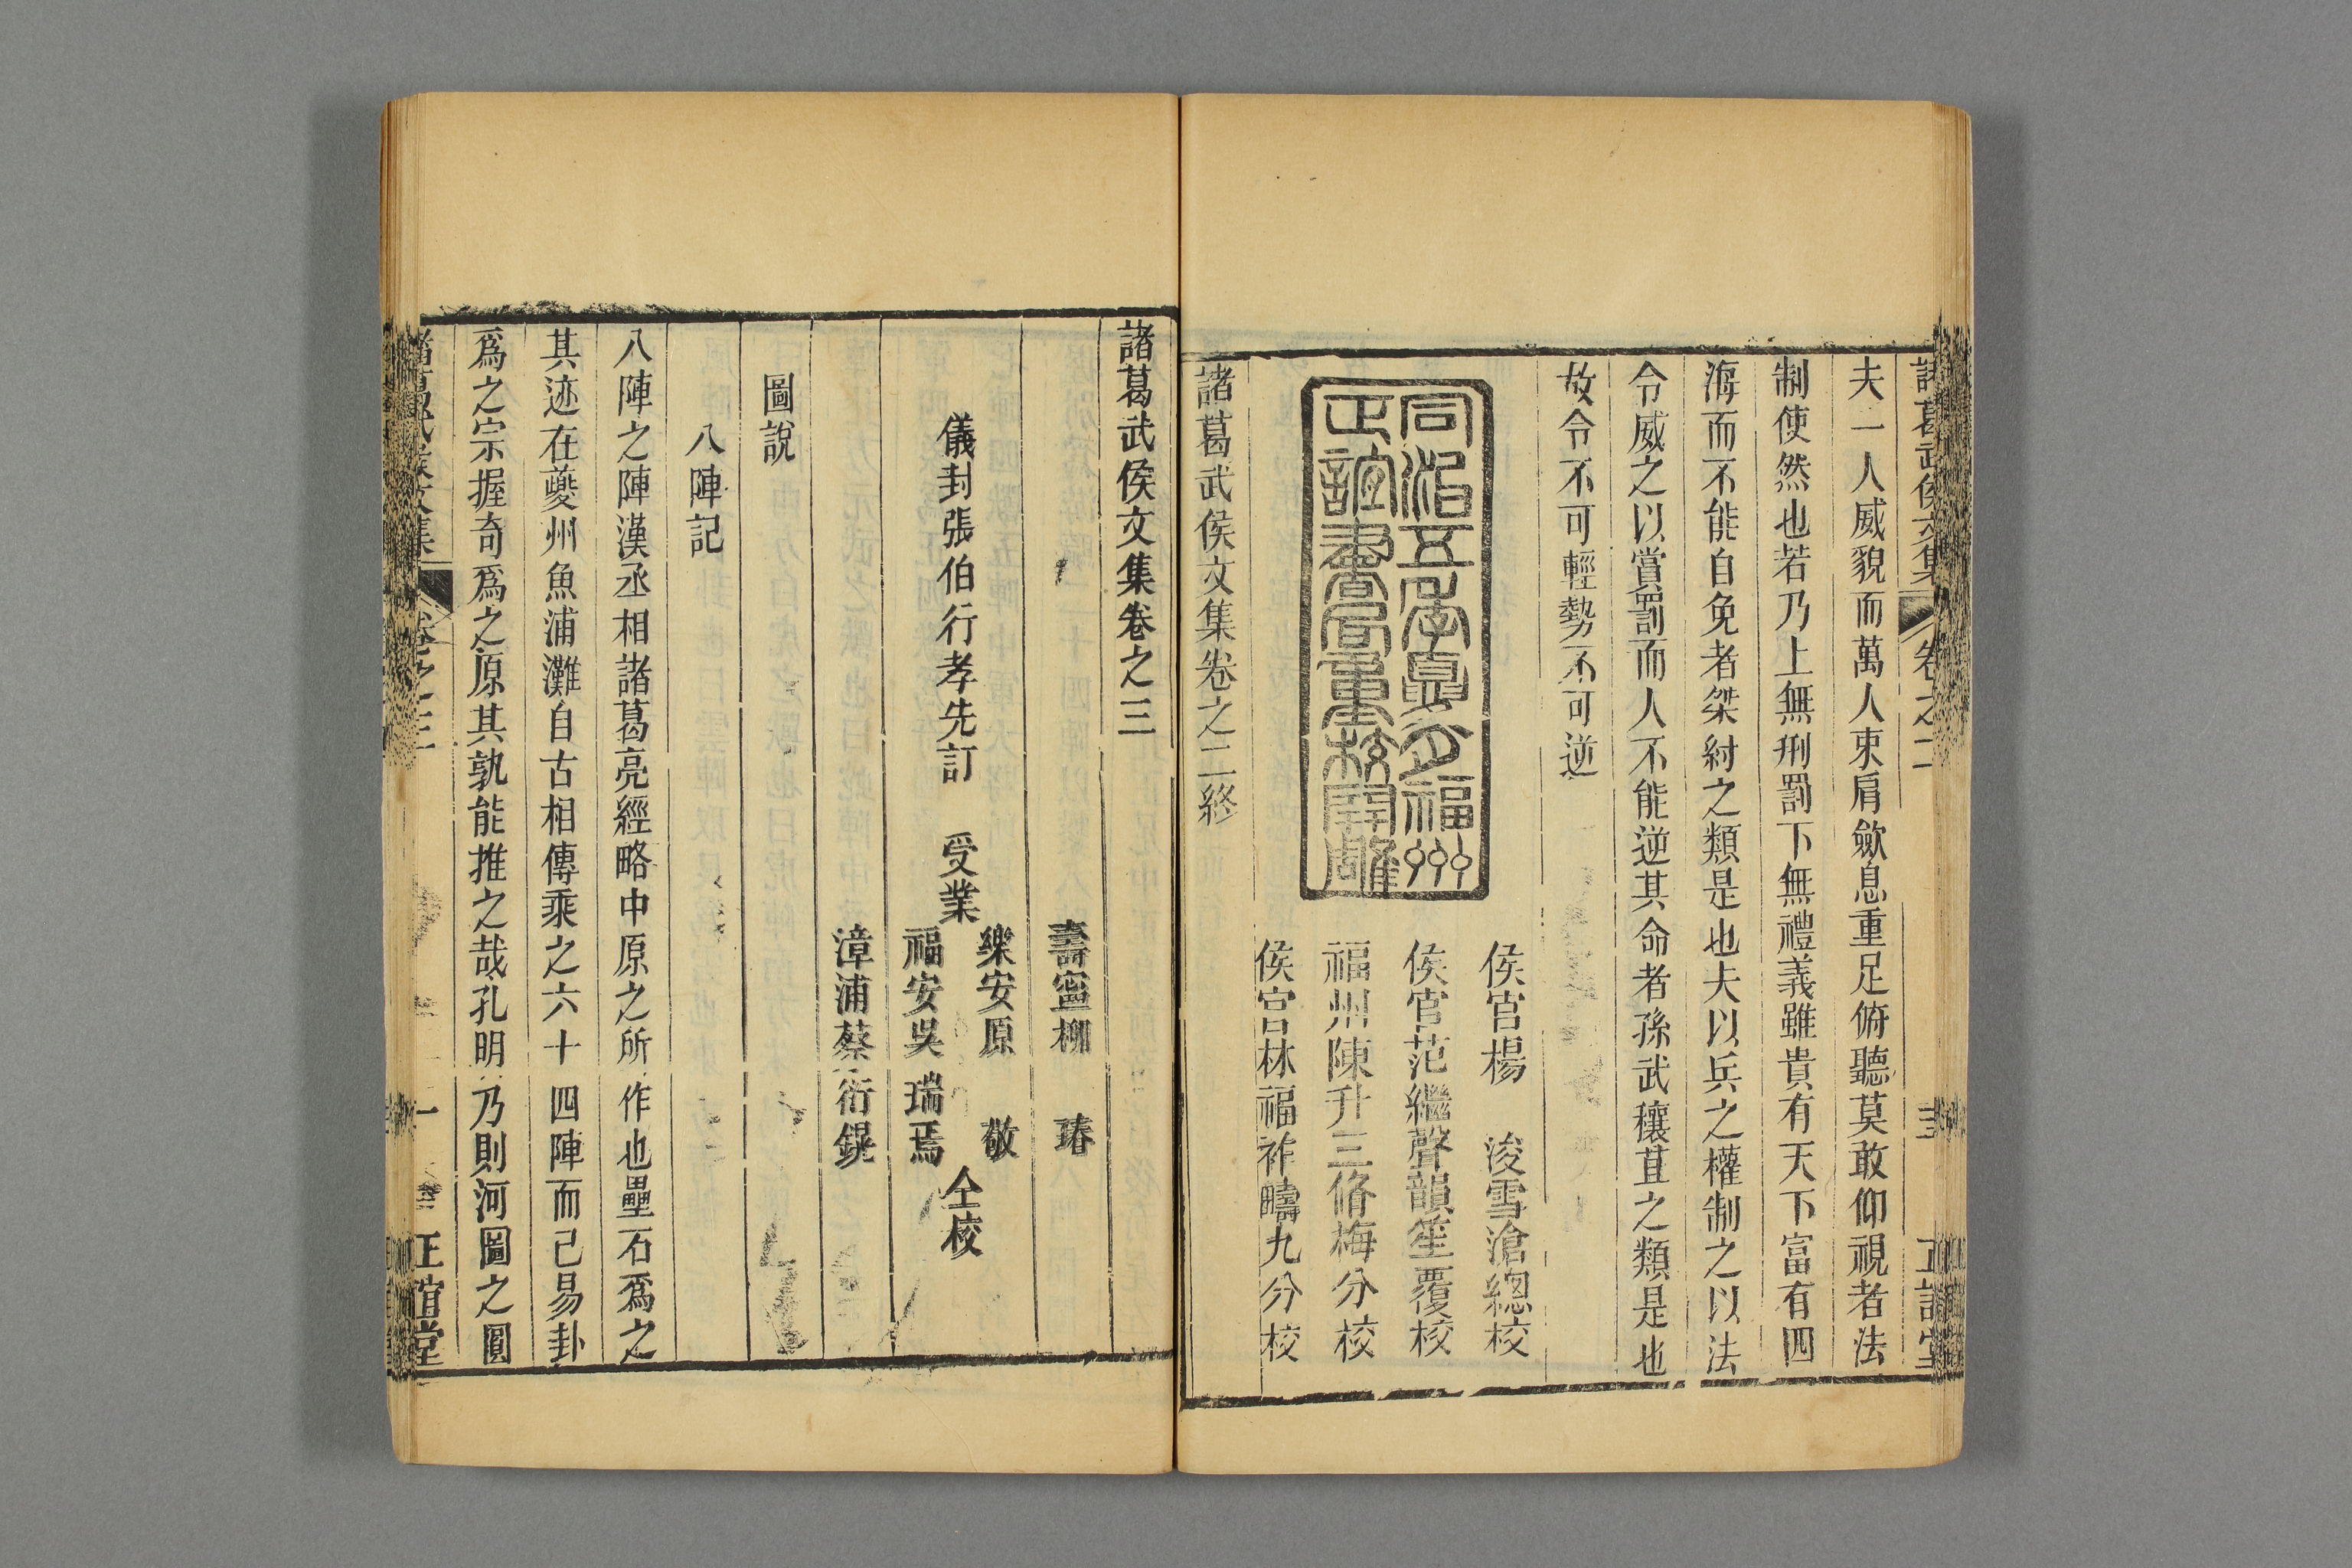 諸葛武侯文集 卷之二 正誼堂
夫一人威貌而萬人束肩歛息重足俯聽莫敢仰視者法
制使然也若乃上無刑罰下無禮義雖貴有天下富有四
海而不能自免者桀紂之類是也夫以兵之權制之以法
令威之以賞罰而人不能逆其命者孫武穰苴之類是也
故令不可輕勢不可逆
侯官楊浚雪滄總校
侯官范繼聲韻笙覆校
福州陳升三脩梅分校
侯官林福祚疇九分校
同治五年夏月福州
正誼書局重校開雕
諸葛武侯文集卷之二終
諸葛武侯文集卷之三
儀封張伯行孝先訂 受業
壽寧柳 瑃
樂安原 敬
福安吳瑞焉
漳浦蔡衍鎤
仝校
圖說
八陣記
八陣之陣漢丞相諸葛亮經略中原之所作也壘石爲之
其迹在夔州魚浦灘自古相傳乘之六十四陣而已易卦
爲之宗握奇爲之原其孰能推之哉孔明乃則河圖之圓
諸葛武侯文集 卷之三 一 正誼堂